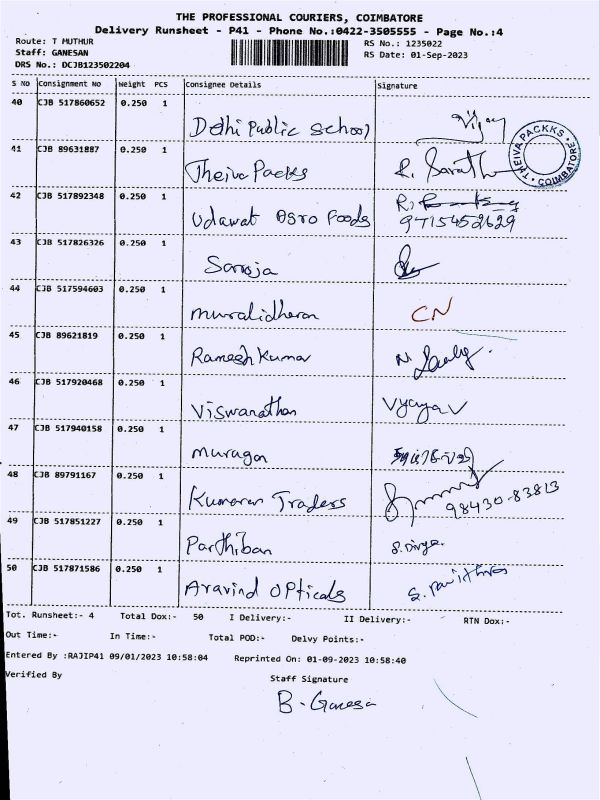 THE PROFESSIONAL COURIERS, COIMBATORE
Delivery Runsheet - P41 - Phone No.:0422-3505555 - Page No.:4
Route: T MUTHUR
RS No.: 1235022
Staff: GANESAN
RS Date: 01-Sep-2023
DRS No.: DCJB123502204
S NO Consignment No Weight PCS Consignee Details Signature
40 CJB 517860652 0.250 1 Delhi Public School Vijay
41 CJB 89631887 0.250 1 Theiva Packs R. Sarath
THEIVA PACKKS COIMBATORE
42 CJB 517892348 0.250 1 Udawat Agro Foods R.
9715452629
43 CJB 517826326 0.250 1 Saroja
44 CJB 517594603 0.250 1 Muralidharan CN
45 CJB 89621819 0.250 1 Ramesh Kumar
46 CJB 517920468 0.250 1 Viswanathan Vyaya V
47 CJB 517940158 0.250 1 Murugan
48 CJB 89791167 0.250 1 Kumaran Traders
98430-83813
49 CJB 517851227 0.250 1 Parthiban S. Divya.
50 CJB 517871586 0.250 1 Aravind Opticals S. Pavithra
Tot. Runsheet:- 4 Total Dox:- 50 I Delivery:- II Delivery:- RTN Dox:-
Out Time:- In Time:- Total POD:- Delvy Points:-
Entered By :RAJIP41 09/01/2023 10:58:04 Reprinted On: 01-09-2023 10:58:40
Verified By Staff Signature
B. Ganesa